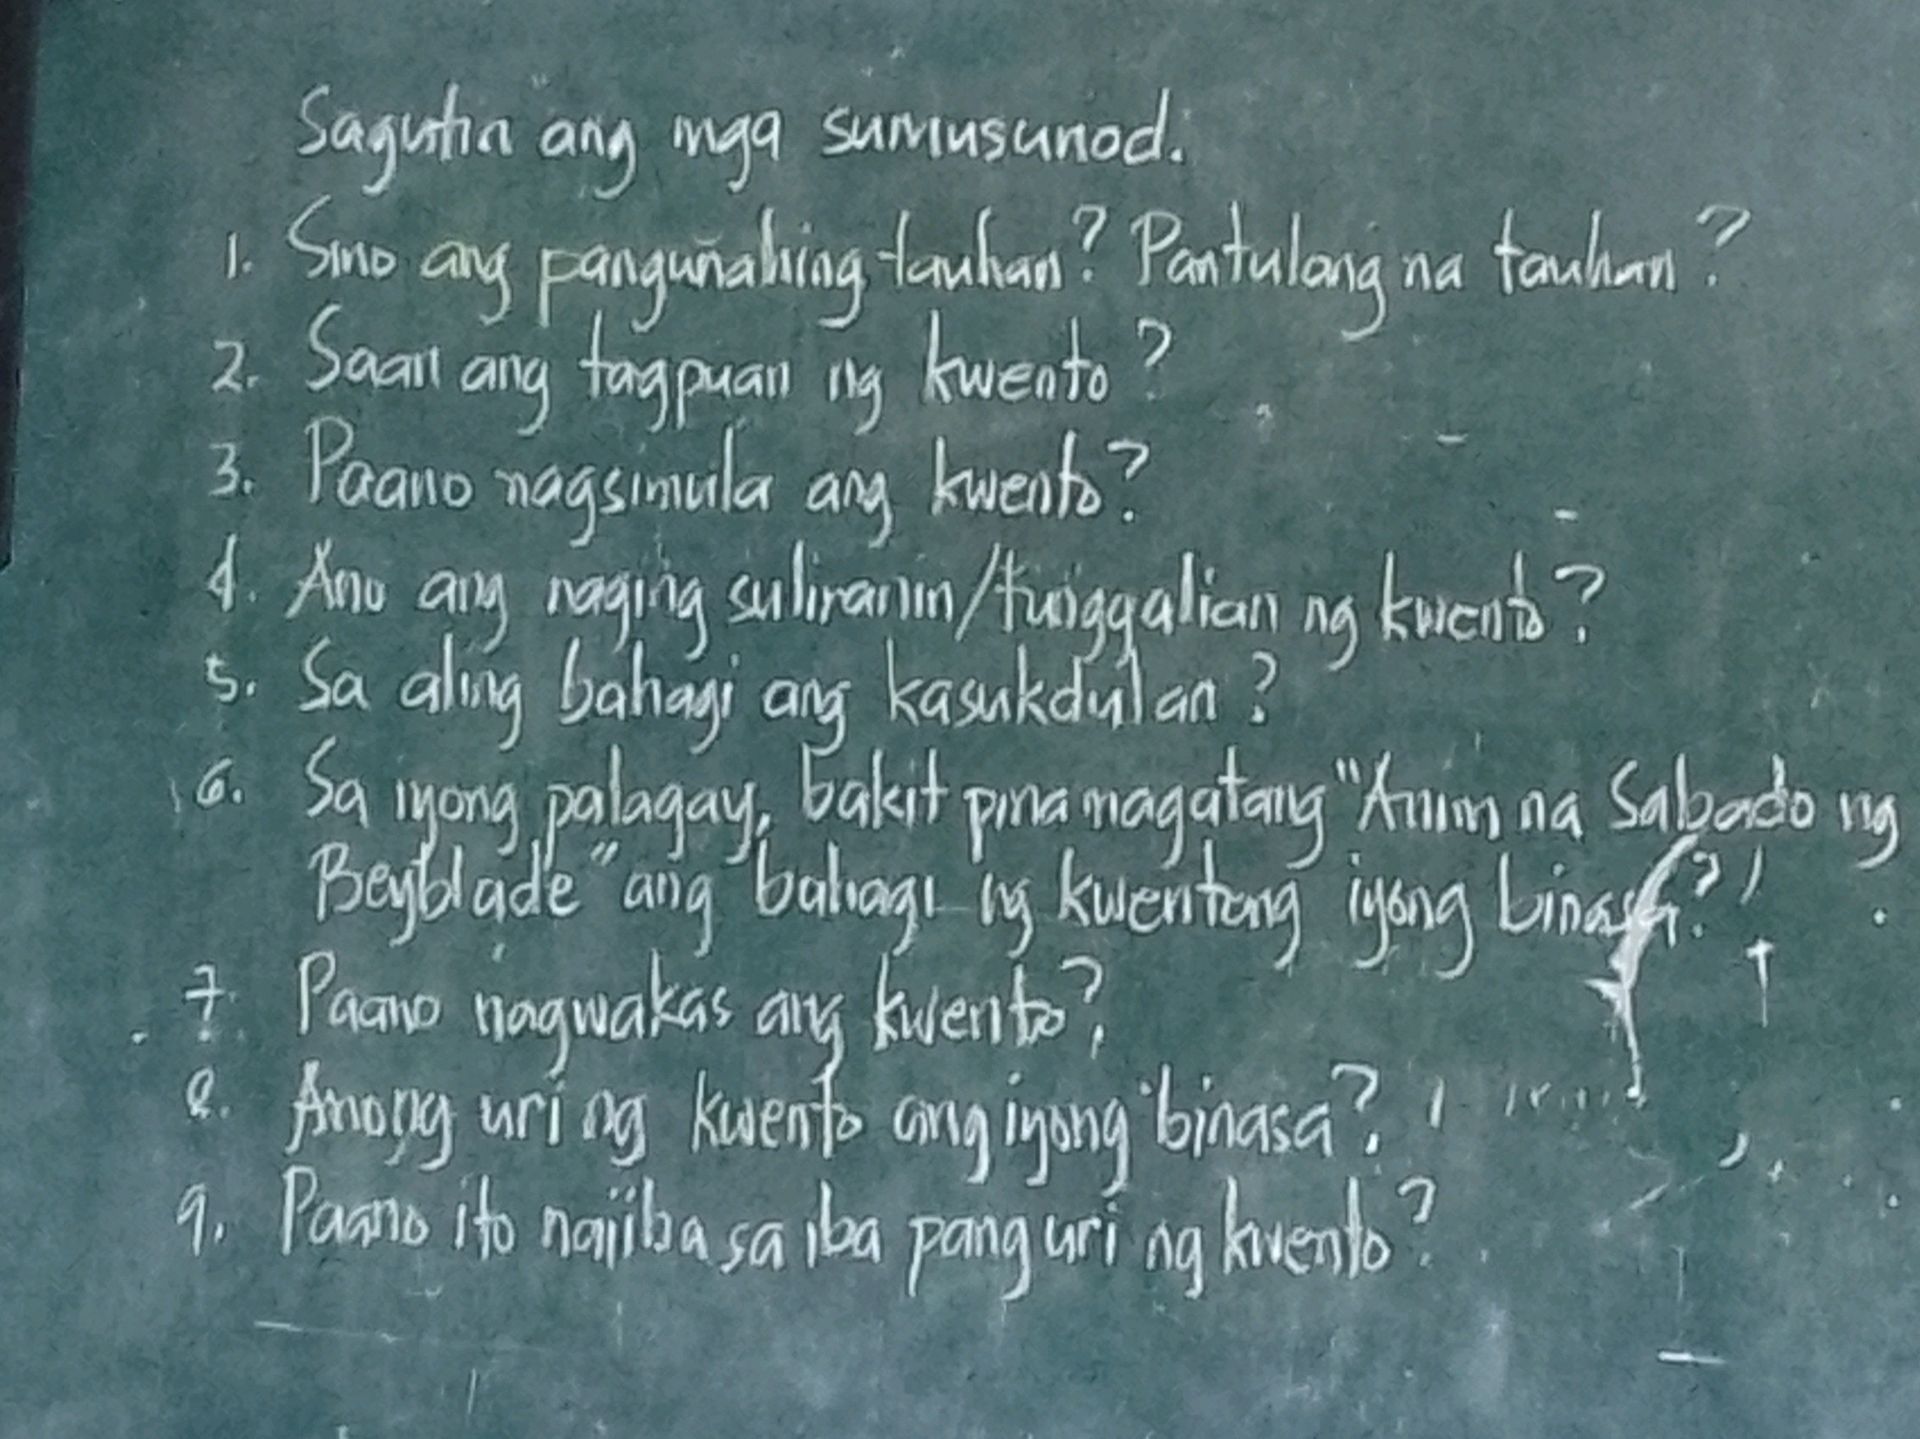 Sagutin ang mga sumusunod.
1. Sino ang pangunahing tauhan? Pantulong na tauhan?
2. Saan ang tagpuan ng kwento?
3. Paano nagsimula ang kwento?
4. Ano ang naging suliranin/tunggalian ng kwento?
5. Sa aling bahagi ang kasukdulan?
6. Sa iyong palagay, bakit pinamagatang "Anim na Sabado ng
Beyblade" ang bahagi ng kwentong iyong binasa?
7. Paano nagwakas ang kwento?
8. Anong uri ng kwento ang iyong binasa?
9. Paano ito naiiba sa iba pang uri ng kwento?